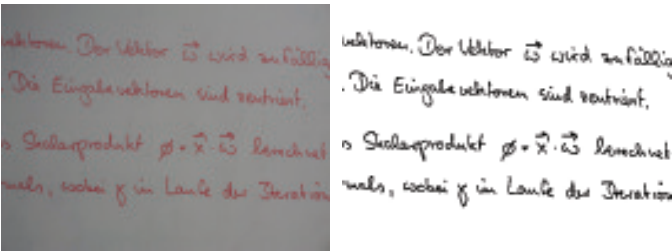 vektoren. Der Vektor w⃗ wird zufällig
. Die Eingabevektoren sind zentriert.
s Skalarprodukt ϕ = x⃗ · w⃗ berechnet
mals, wobei γ im Laufe der Iteration
vektoren. Der Vektor w⃗ wird zufällig
. Die Eingabevektoren sind zentriert.
s Skalarprodukt ϕ = x⃗ · w⃗ berechnet
mals, wobei γ im Laufe der Iteration